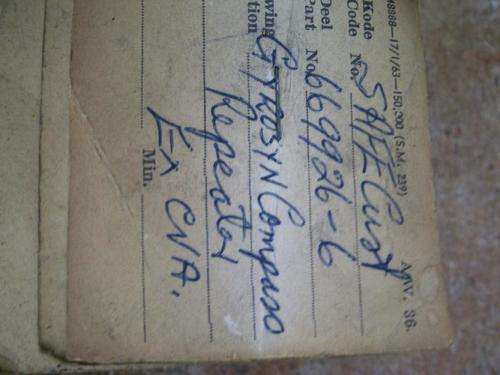 48888—17/1/63—150,000 (S.M. 239) ADV. 36.
Kode
Code No. SAFE Cust
Deel
Part No. 669926-6
wing
tion Gyrosyn Compass
Repeater
Ex CNA.
Min.